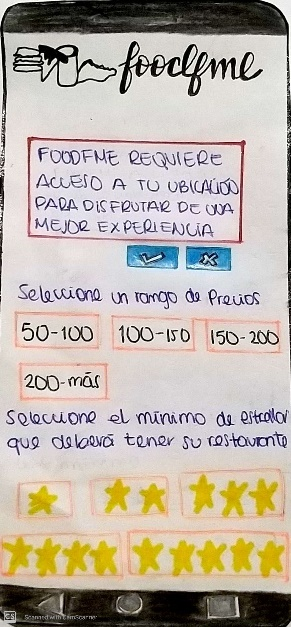 foodfme
FOODFME REQUIERE
ACCESO A TU UBICACIÓN
PARA DISFRUTAR DE UNA
MEJOR EXPERIENCIA
Seleccione un rango de Precios
50-100
100-150
150-200
200-más
Seleccione el mínimo de estrellas
que deberá tener su restaurante
CS Scanned with CamScanner